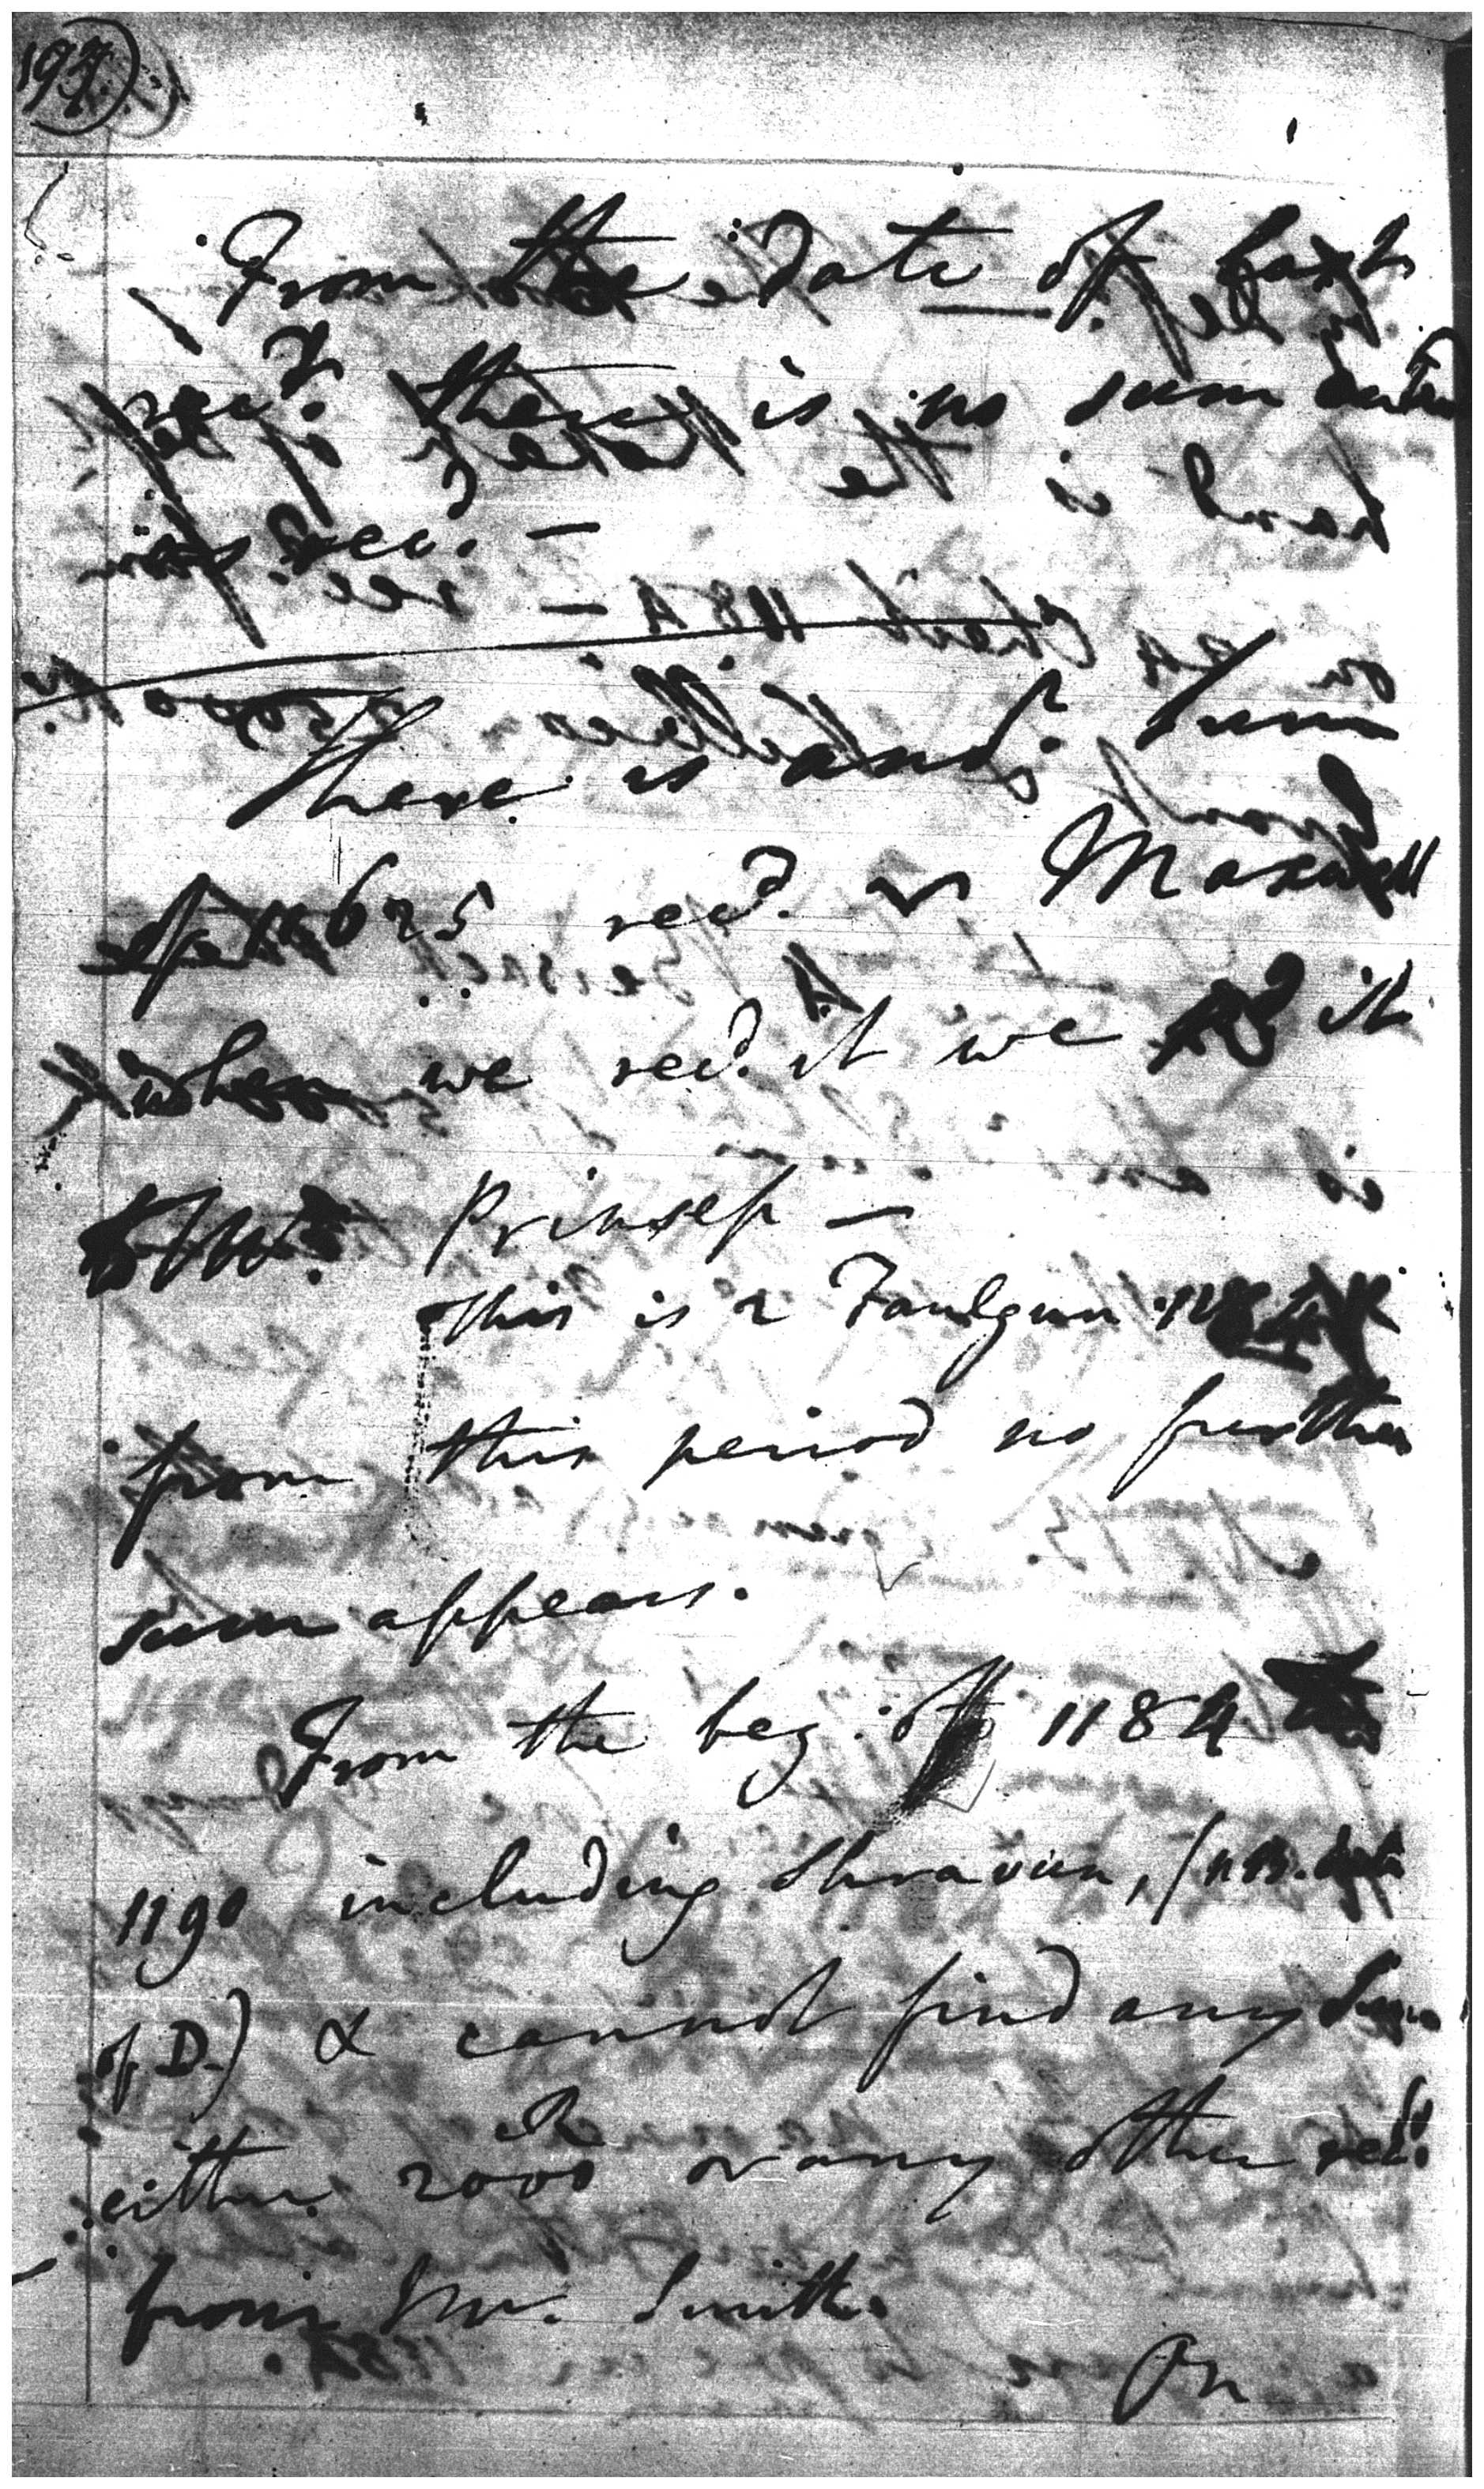 From the date of last
rec.t there is no sum
rec.d —
There is and.r sum
of 11625 rec.d Maxwell
when we rec.d it we it
to Mr. Prinsep —
this is 2 Faulgun
from this period no further
sum appears.
From the beg: of 1184
1190 including Shravun, (
of D.) & cannot find any Sum
either 2000 or any other rec.d
from Mr. Smith.
On